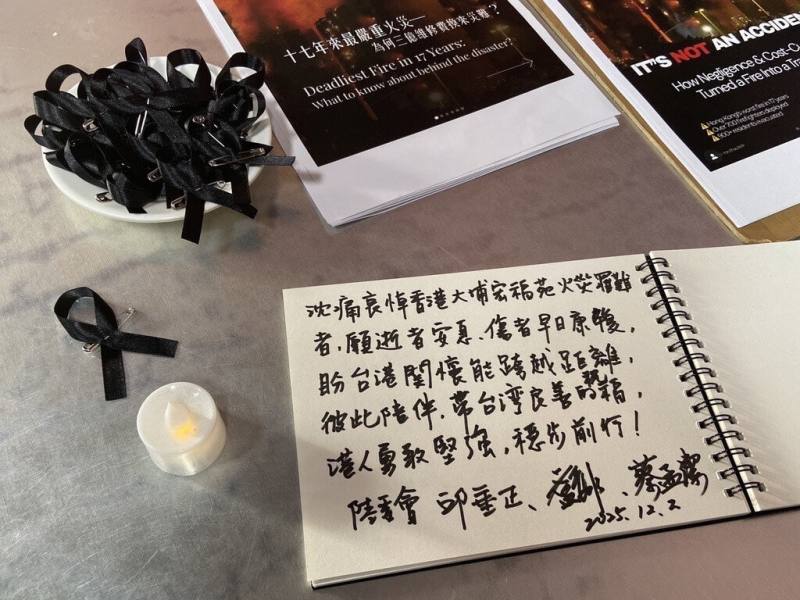 十七年來最嚴重火災—
為何三億維修費換來災難？
Deadliest Fire in 17 Years:
What to know about behind the disaster?
IT'S NOT AN ACCIDEN
How Negligence & Cost-Cu
Turned a Fire Into a Tra
Hong Kong's worst fire in 17 years
Over 200 firefighters deployed
400+ residents evacuated
沈痛哀悼香港大埔宏福苑火災罹難
者，願逝者安息、傷者早日康復，
盼台港關懷能跨越距離，
彼此陪伴，帶台湾良善的
港人勇敢堅強，穩步前行！
陸委會 邱垂正、
2025.12.2